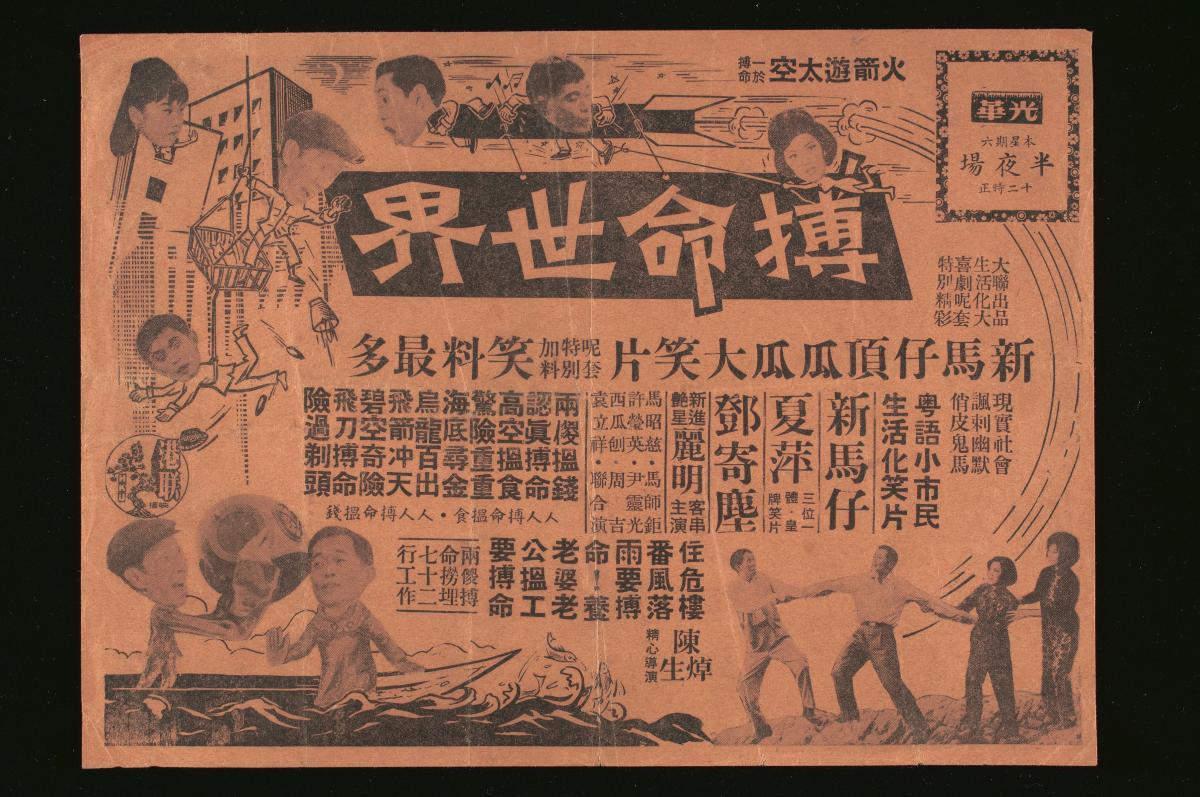 火箭遊太空
一於搏命
光華
本星期六
半夜場
十二時正
搏命世界
大聯出品
生活化大
喜劇呢套
特別精彩
新馬仔頂瓜瓜大笑片
呢套
特別
加料
笑料最多
現實社會
諷刺幽默
俏皮鬼馬
粤語小市民
生活化笑片
新馬仔
三位一
體·皇
牌笑片
夏萍
鄧寄塵
新進
艷星
麗明
客串
主演
馬昭慈·馬師鉅
許瑩英·尹靈光
西瓜刨·周吉
袁立祥·聯合演
兩傻搵錢
認眞搏命
高空搵食
驚險重重
海底尋金
烏龍百出
飛箭冲天
碧空奇險
飛刀搏命
險過剃頭
人人搏命搵食·人人搏命搵錢
港聯
住危樓
番風落
雨要搏
命!養
老婆老
公搵工
要搏命
兩傻搏
命撈埋
七十二
行工作
陳焯生
精心導演